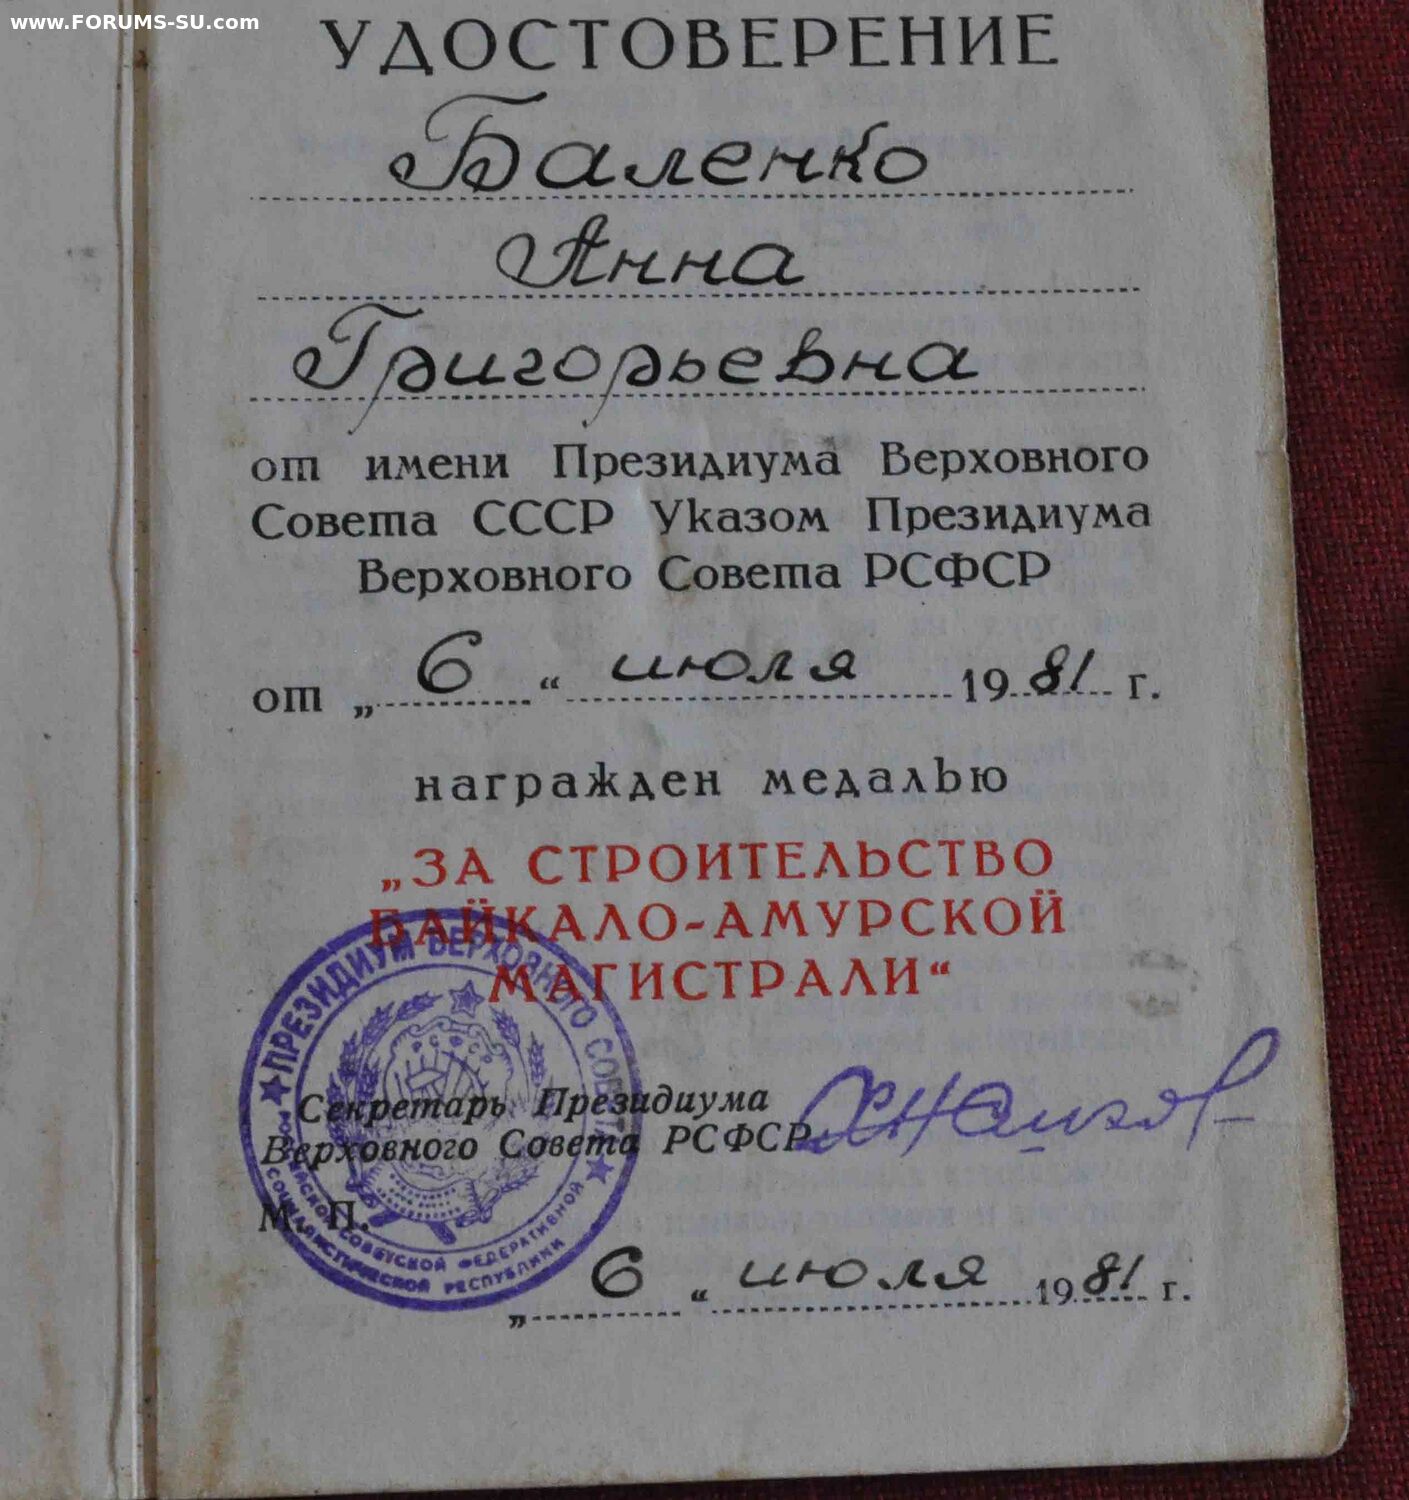 www.FORUMS-SU.com
УДОСТОВЕРЕНИЕ
Баленко
Анна
Григорьевна
от имени Президиума Верховного
Совета СССР Указом Президиума
Верховного Совета РСФСР
от „ 6 “ июля 1981 г.
награжден медалью
„ЗА СТРОИТЕЛЬСТВО
БАЙКАЛО-АМУРСКОЙ
МАГИСТРАЛИ“
ПРЕЗИДИУМ ВЕРХОВНОГО СОВЕТА
СОВЕТСКОЙ ФЕДЕРАТИВНОЙ
СОЦИАЛИСТИЧЕСКОЙ РЕСПУБЛИКИ
Секретарь Президиума
Верховного Совета РСФСР
М. П.
„ 6 “ июля 1981 г.